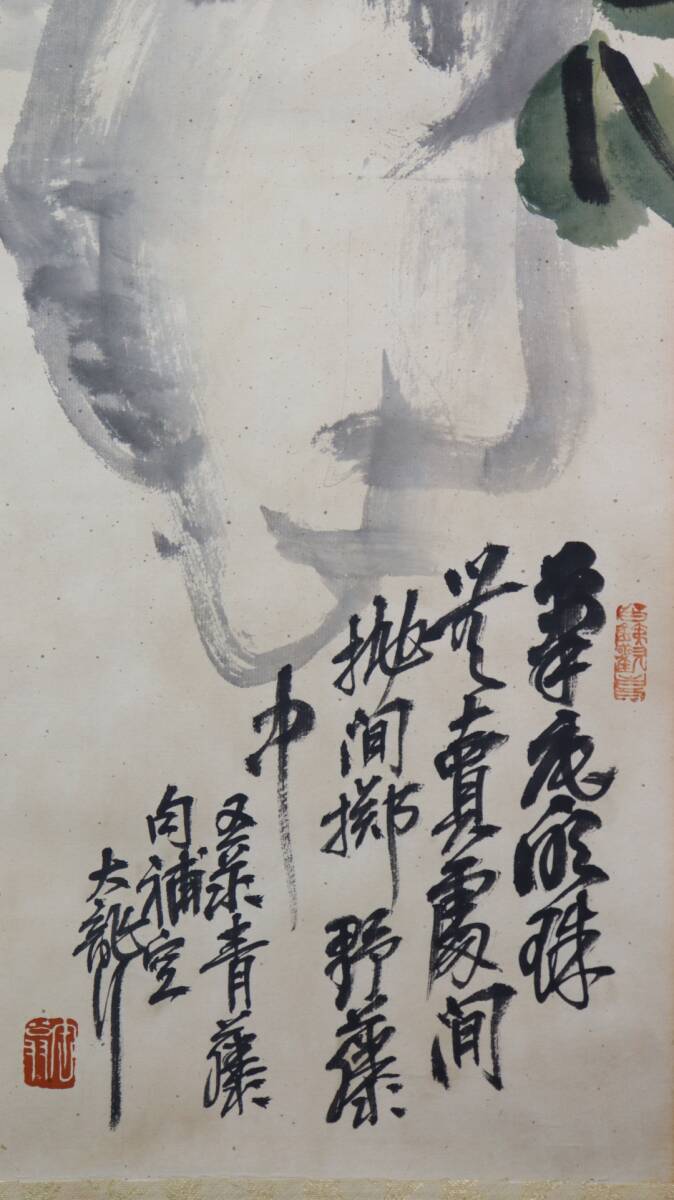 筆底明珠
無賣處閒
抛閒擲野藤
中
又录青藤
句補空
大龍